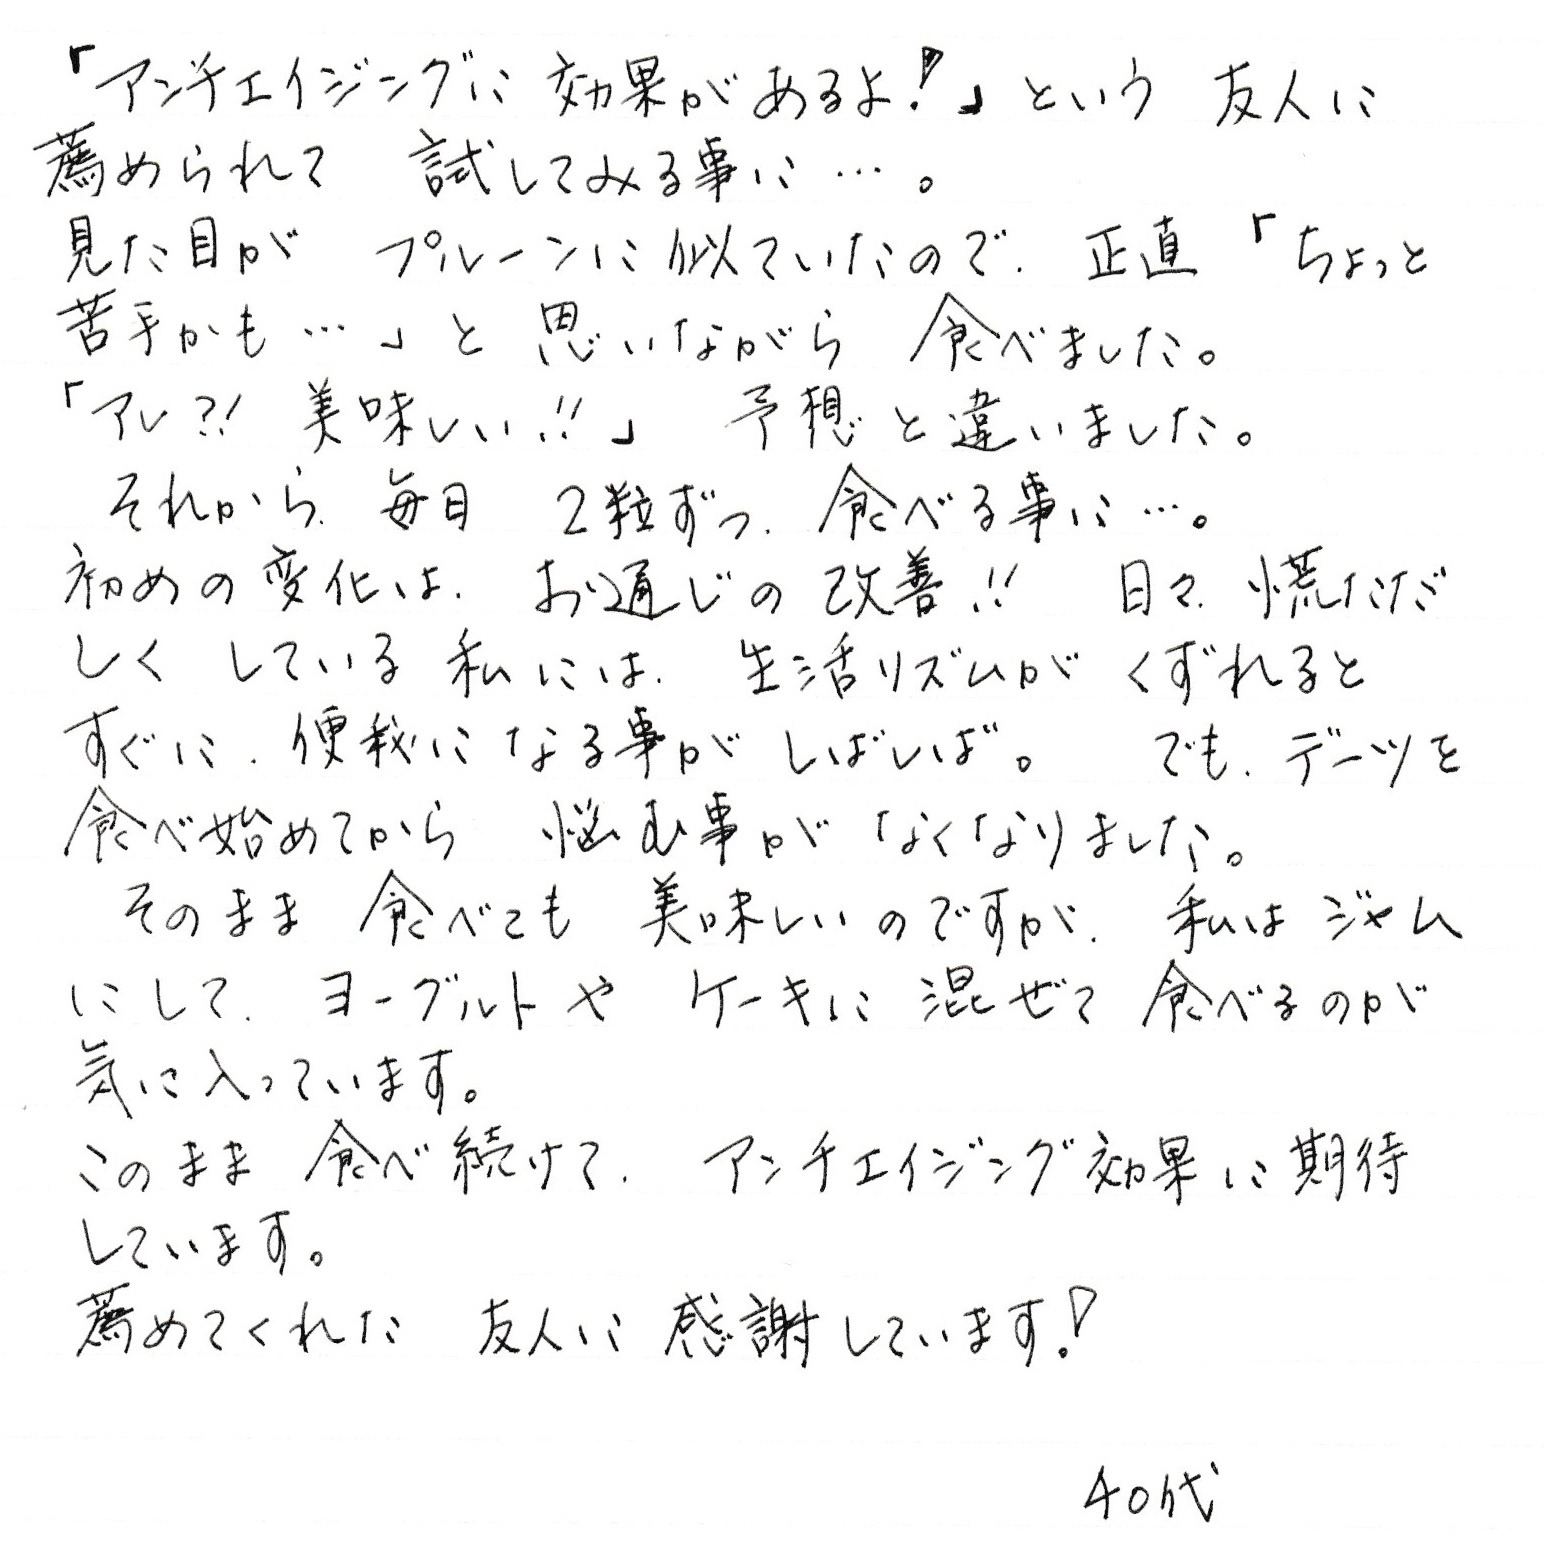 「アンチエイジングに 効果があるよ!」という 友人に
薦められて 試してみる事に…。
見た目が プルーンに似ていたので、正直「ちょっと
苦手かも…」と 思いながら 食べました。
「アレ?! 美味しい!!」 予想と違いました。
それから、毎日 2粒ずつ、食べる事に…。
初めの変化は、お通じの改善!! 日々、慌ただだ
しく している 私には、生活リズムが くずれると
すぐに、便秘になる事が しばしば。 でも、デーツを
食べ始めてから 悩む事が なくなりました。
そのまま 食べても 美味しいのですが、私は ジャム
にして、ヨーグルトや ケーキに 混ぜて 食べるのが
気に入っています。
このまま 食べ続けて、アンチエイジング効果に期待
しています。
薦めてくれた 友人に 感謝しています!
40代